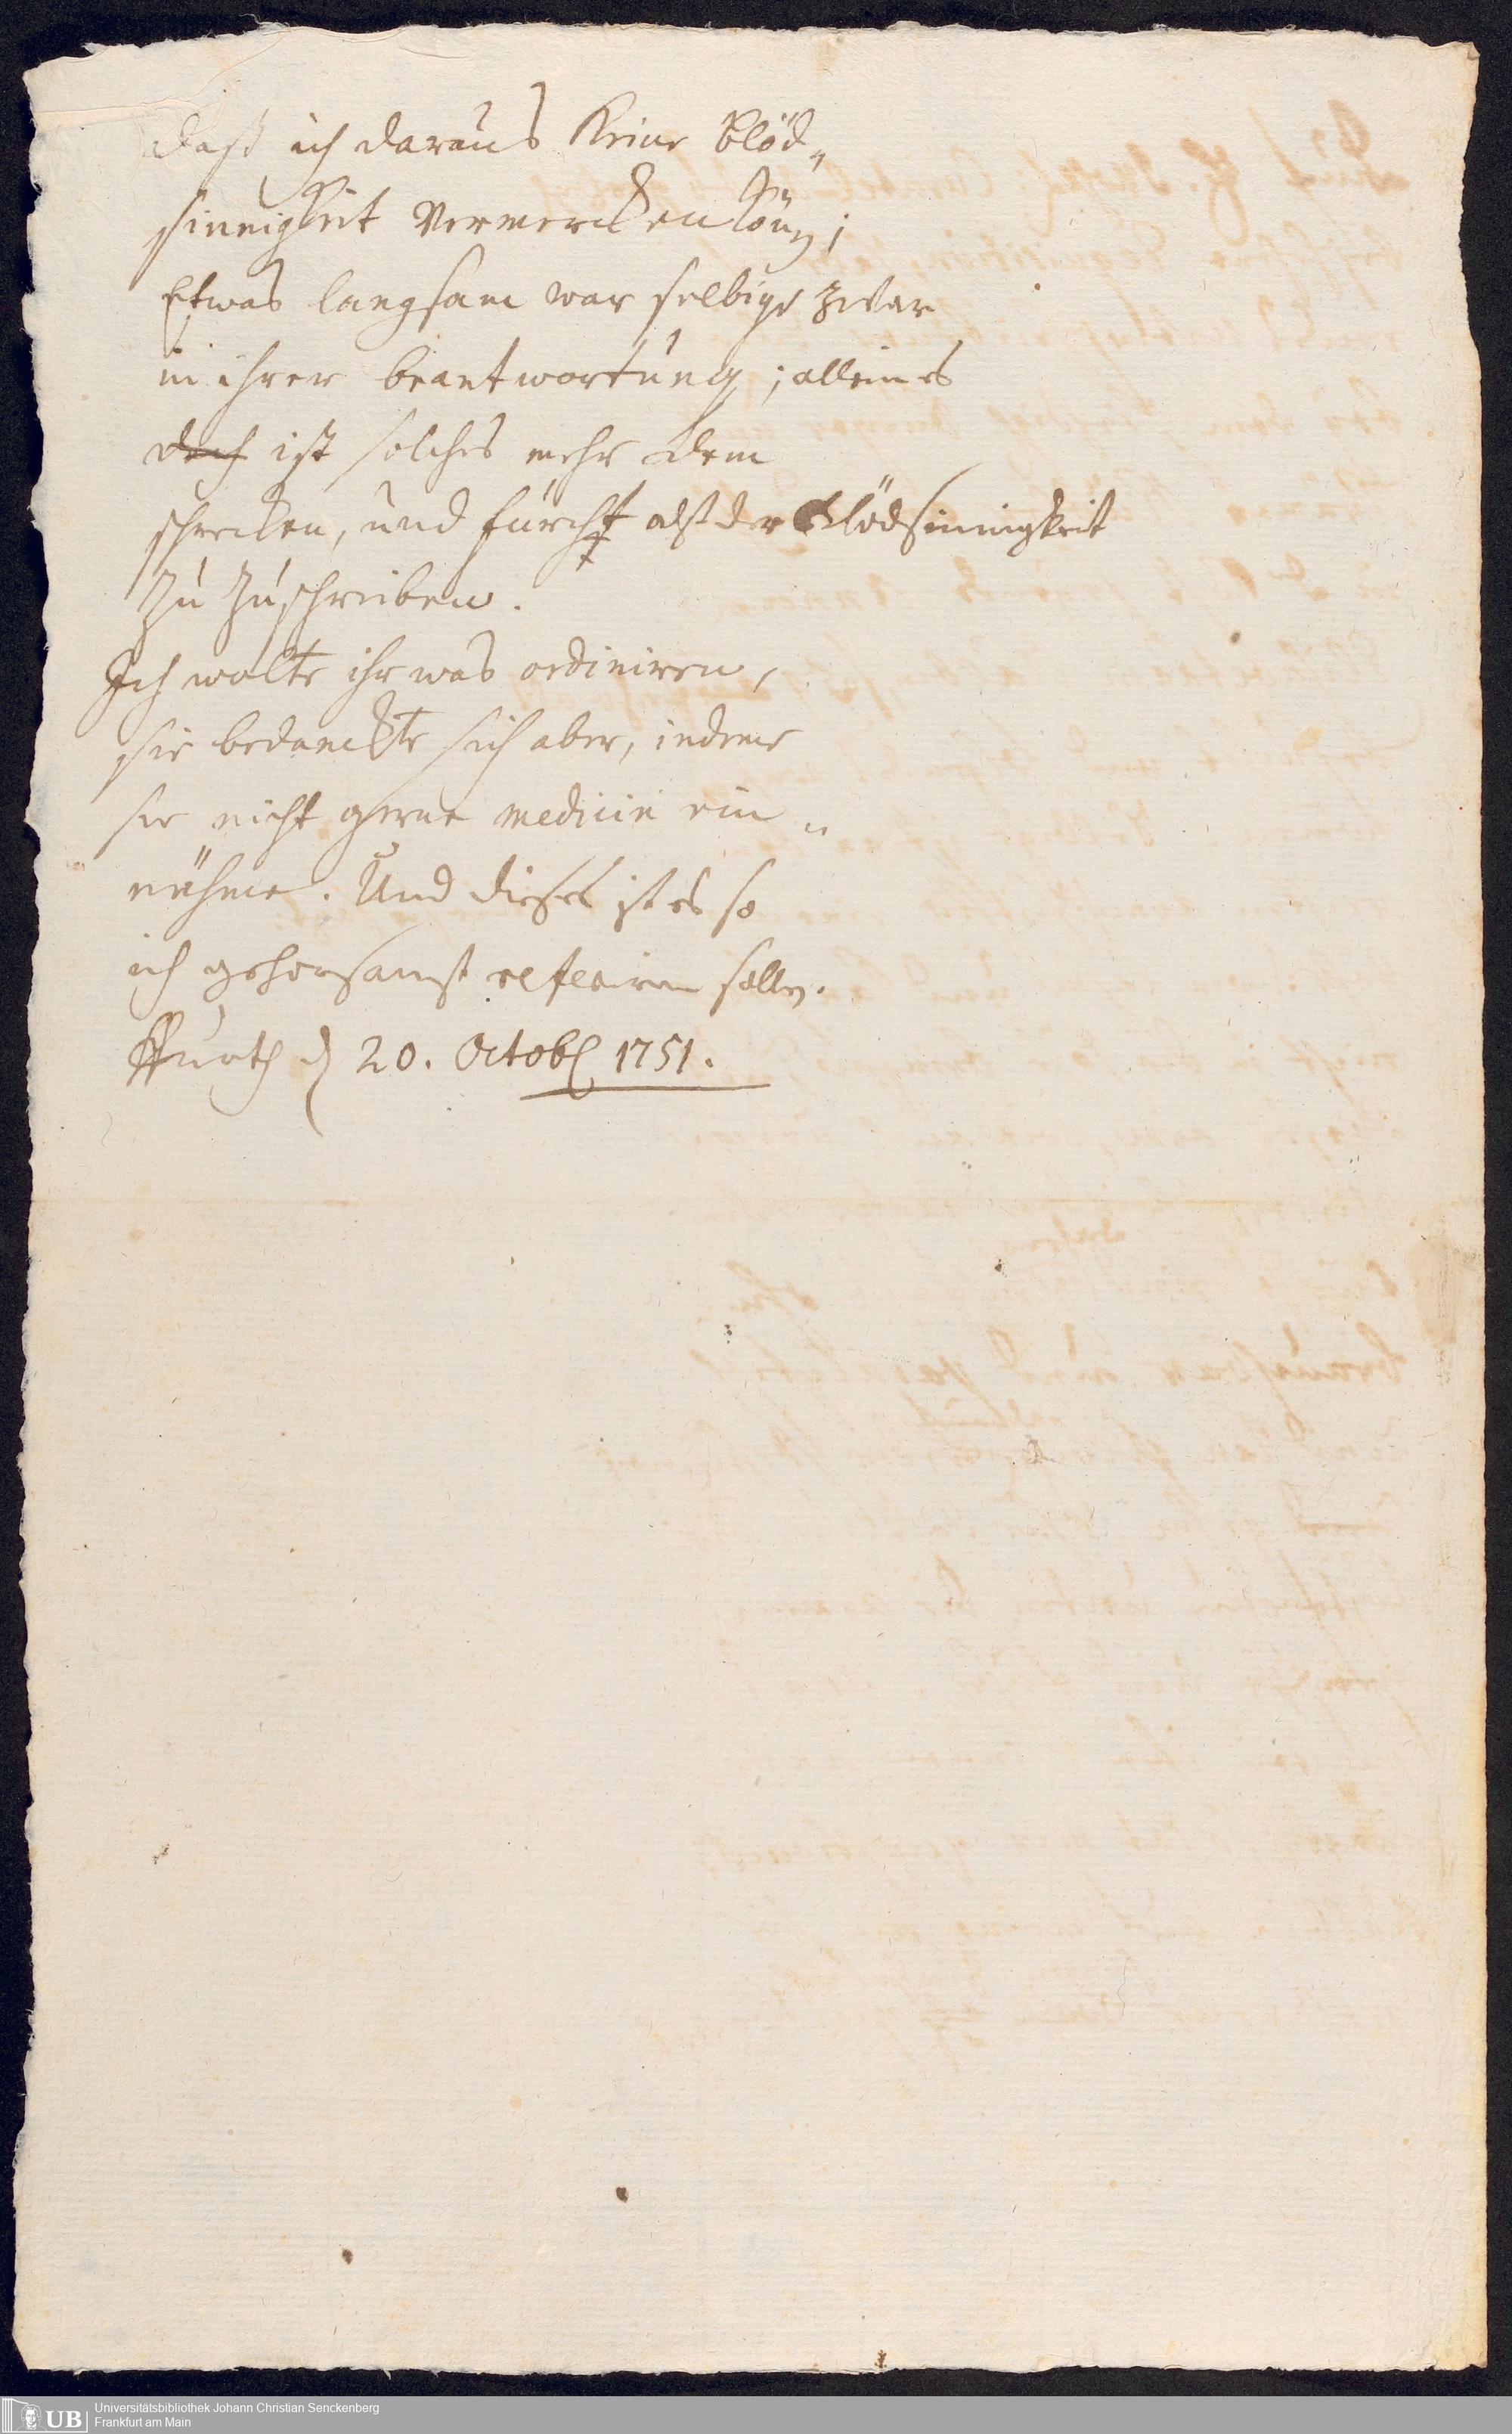 daß ich daraus keine blöd„
sinnigkeit vermercken könen;
Etwas langsam war selbige zwar
in ihrer beantwortung; allein es
doch ist solches mehr dem
schrecken, und furcht alß der Blödsinnigkeit
zu zuschreiben.
Ich wolte ihr was ordiniren,
sie bedanckte sich aber, indeme
sie nicht gerne medicin ein„
nähme. Und dieses ist es so
ich gehorsamst referiren sollen.
den 20. Octobr 1751.
UB Universitätsbibliothek Johann Christian Senckenberg
Frankfurt am Main